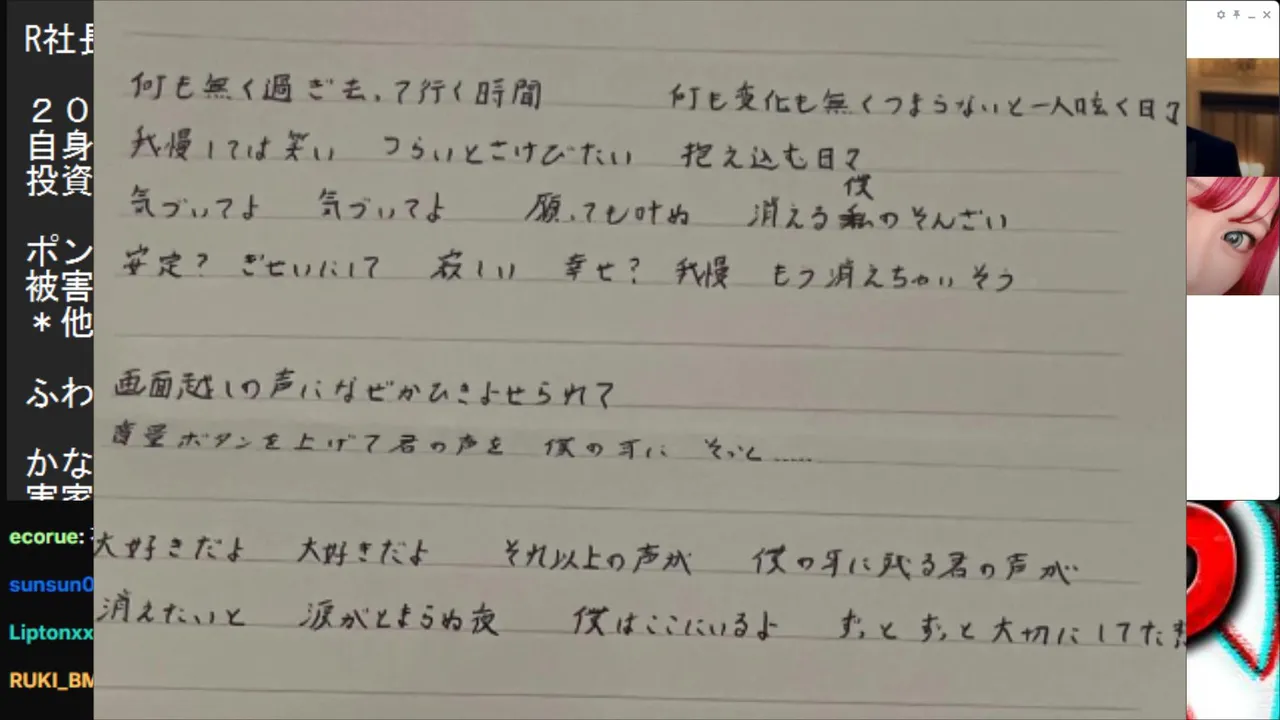 R社長
２０
自身
投資
ポン
被害
＊他
ふわ
かな
実家
ecorue:
sunsun0
Liptonxx
RUKI_BM
何も無く過ぎ去って行く時間 何も変化も無くつまらないと一人呟く日々
我慢しては笑い つらいとさけびたい 抱え込む日々
僕
気づいてよ 気づいてよ 願っても叶ぬ 消える私のそんざい
安定? ぎせいにして 寂しい 幸せ? 我慢 もう消えちゃいそう
画面越しの声になぜかひきよせられて
音量ボタンを上げて君の声を 僕の耳に そっと……
大好きだよ 大好きだよ それ以上の声が 僕の耳に残る君の声が
消えたいと 涙がとまらぬ夜 僕はここにいるよ ずっと ずっと 大切にしてた